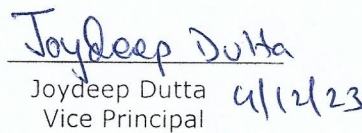 Joydeep Dutta
Joydeep Dutta
4/12/23
Vice Principal